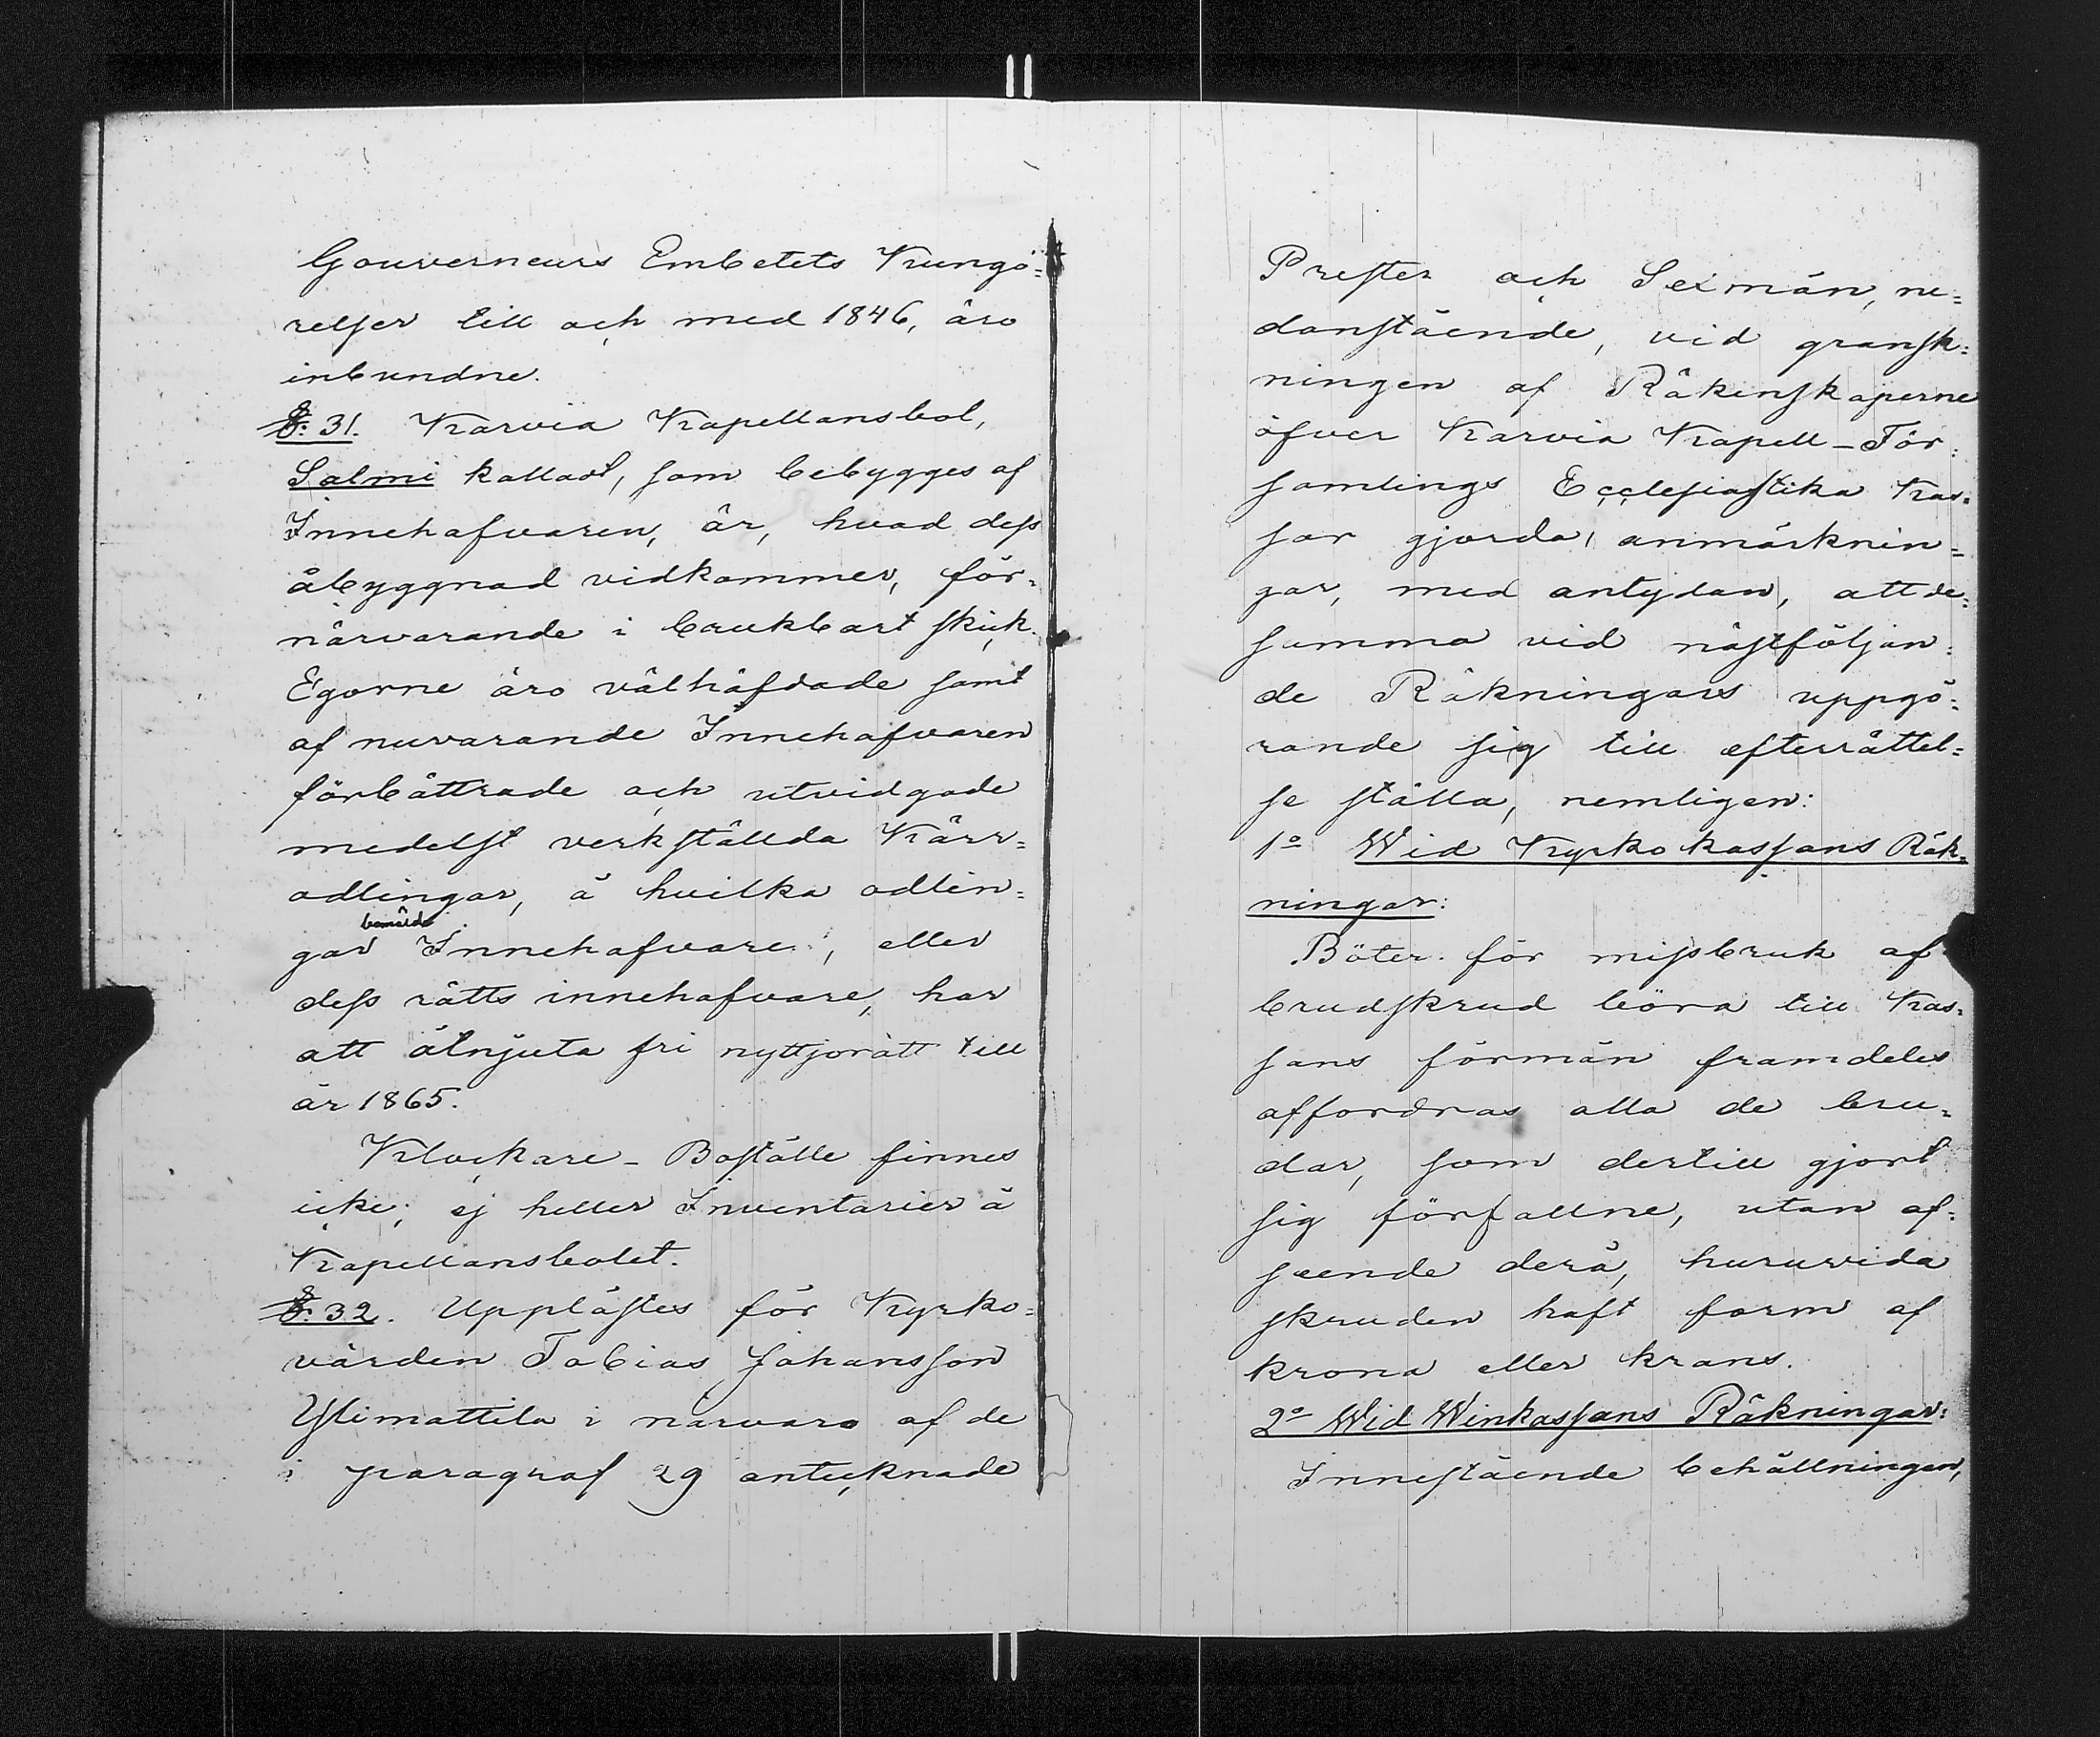 Gouverneurs Embetets Kungö=
relser till och med 1846, äro
inbundne.
§: 31. Karvia Kapellansbol,
Salmi kalladt, som bebygges af
Innehafvaren, är, hvad dess
åbyggnad vidkommer, för-
närvarande i brukbart skick.
Egorne äro välhäfdade samt
af nuvarande Innehafvaren
förbättrade och utvidgade
medelst verkställda Kärr=
odlingar, å hvilka odlin=
bemälde
gar Innehafvare, eller
dess rätts innehafvare, har
att åtnjuta fri nyttjorätt till
år 1865.
Klockare-Boställe finnes
icke; ej heller Inventarier å
Kapellansbolet.
§: 32. Upplästes för Kyrko=
värden Tobias Johansson
Ylimattila i närvaro af de
i paragraf 29 antecknade
Prester och Sexmän, ne=
danstående, vid gransk=
ningen af Räkenskaperne
öfver Karvia Kapell-För=
samlings Ecclesiastika Kas=
sor gjorda, anmärknin=
gar, med antydan, att de=
samma vid nästföljan=
de Räkningars uppgö=
rande sig till efterrättel=
se ställa, nemligen:
1º Wid Kyrkokassans Räk=
ningar:
Böter för missbruk af
brudskrud böra till Kas=
sans förmån framdeles
affordras alla de bru=
dar, som dertill gjort
sig förfallne, utan af=
seende derå, huruvida
skruden haft form af
krona eller krans.
2º Wid Winkassans Räkningar:
Innestående behållningen,